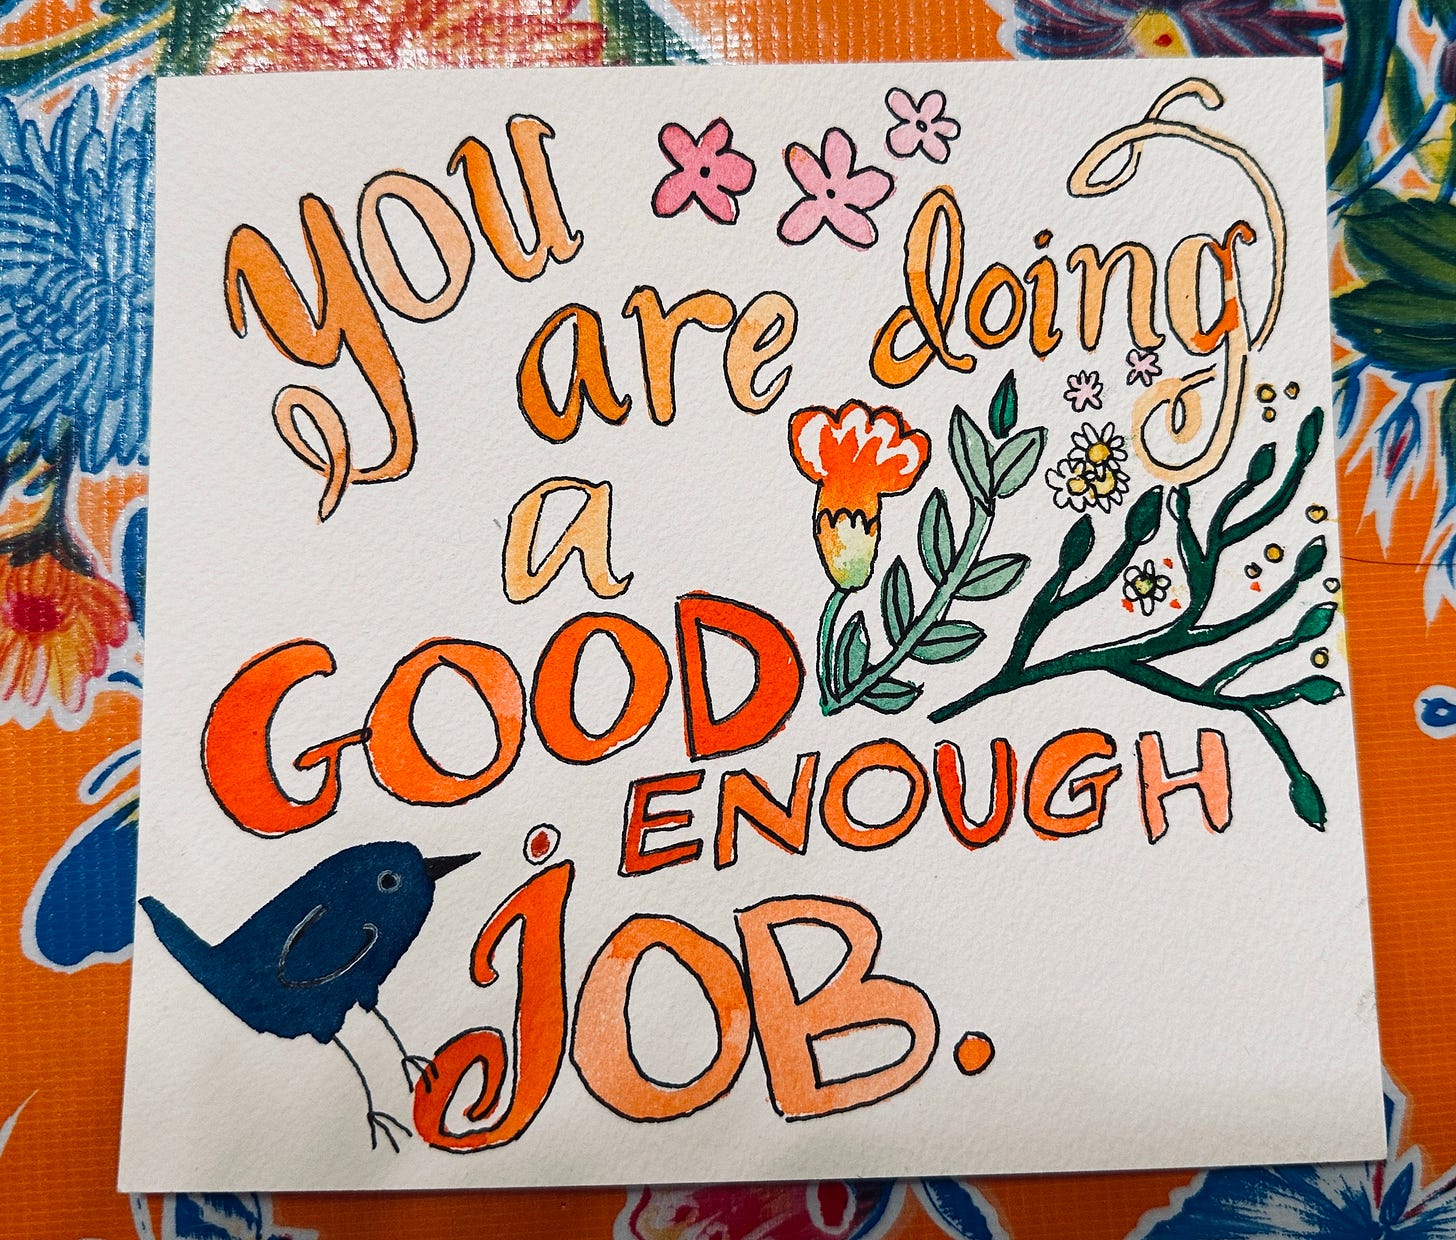 you are doing
a
GOOD
ENOUGH
JOB.